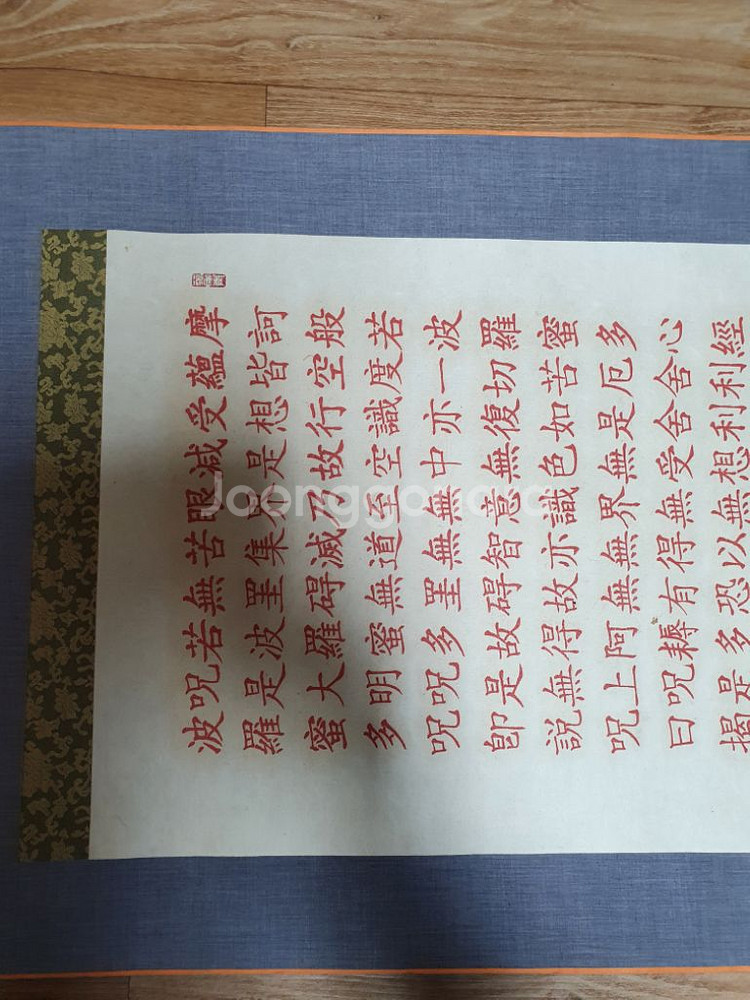 摩訶般若波羅蜜多心經
蘊皆空度一切苦厄舍利
受想行識亦復如是舍利
減是故空中無色無受想
眼界乃至無意識界無無
苦集滅道無智亦無得以
無罣碍無罣碍故無有恐
若波羅蜜多故得阿耨多
呪是大明呪是無上呪是
波羅蜜多呪即說呪曰揭
Joonggonara